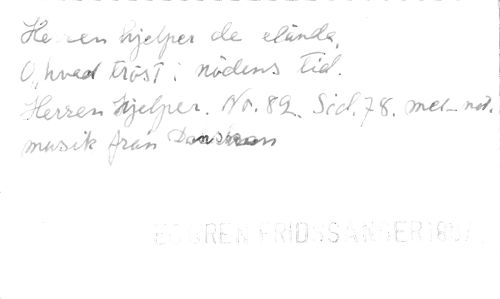 Herren hjelper de elända,
O, hvad tröst i nödens tid.
Herren hjelper. No. 82. Sid. 78. med not.
musik från
FRIDSSÅNGER